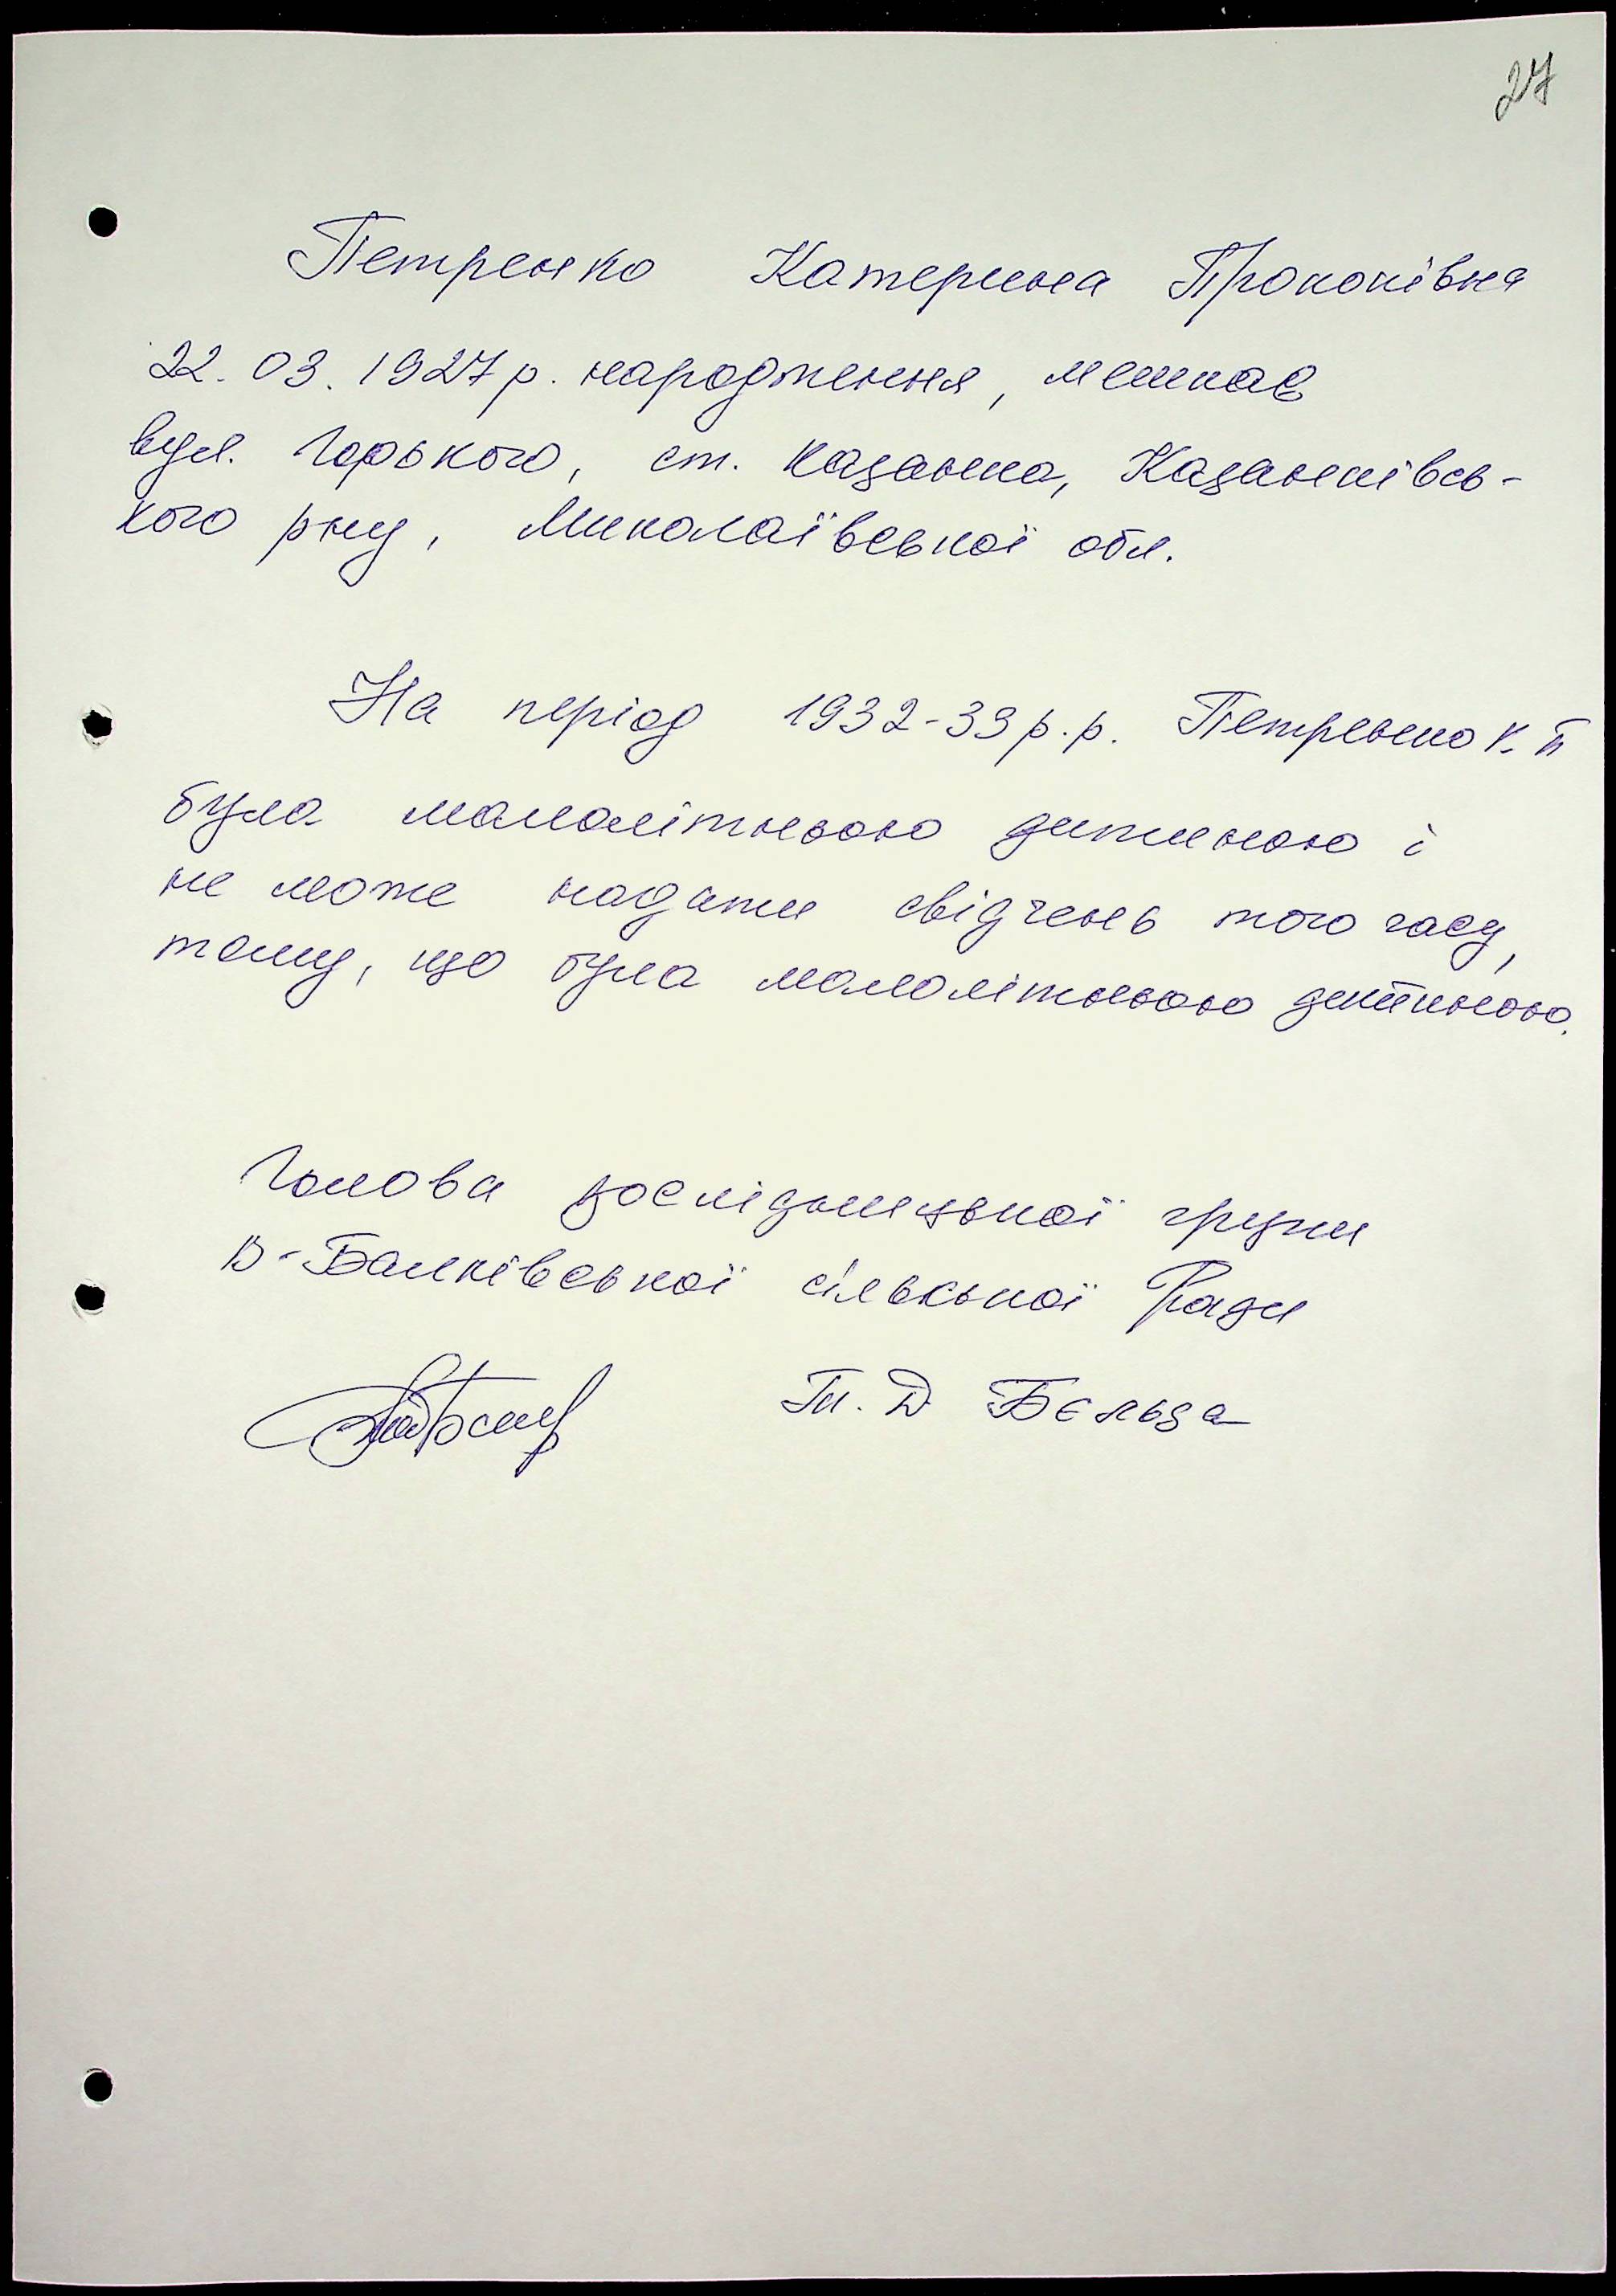 27
Петренко Катерина Прокопівна
22.03.1927 р. народження, мешкає
вул. Горького, ст. Казанка, Казанківсь-
кого р-ну, Миколаївської обл.
На період 1932-33 р.р. Петренко К. П
була малолітньою дитиною і
не може надати свідчень того часу,
тому, що була малолітньою дитиною.
Голова дослідницької групи
В-Балківської сільської Ради
Т. Д Бєльза